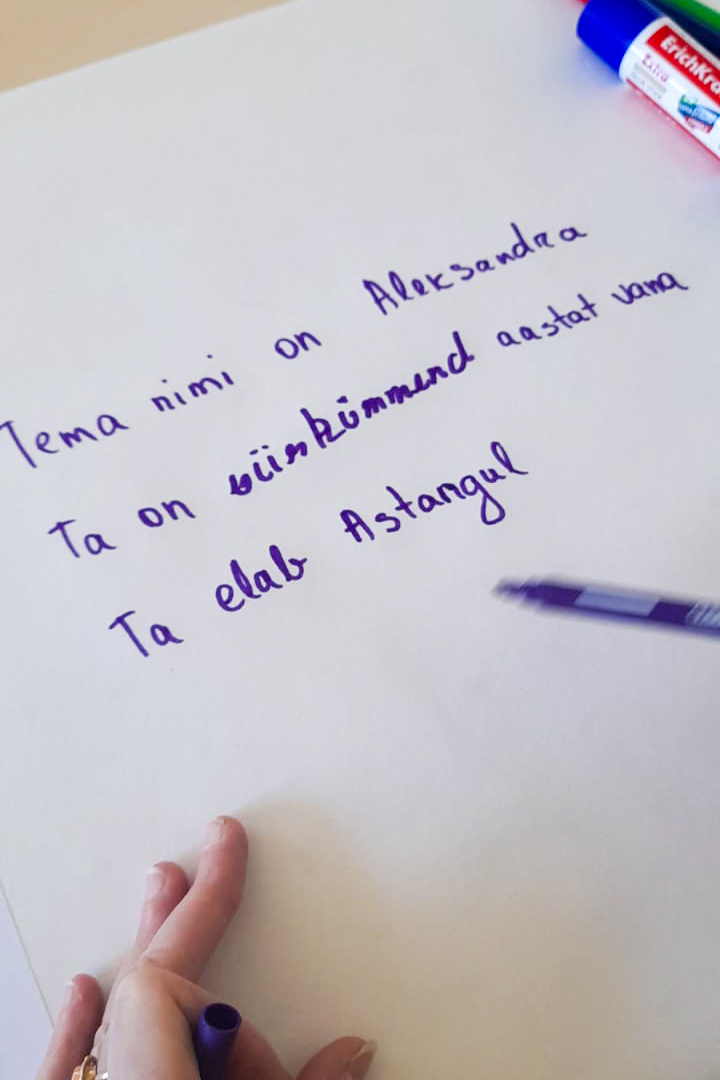 ErichKra
Extra
Tema nimi on Aleksandra
Ta on viiskümmend aastat vana
Ta elab Astangul